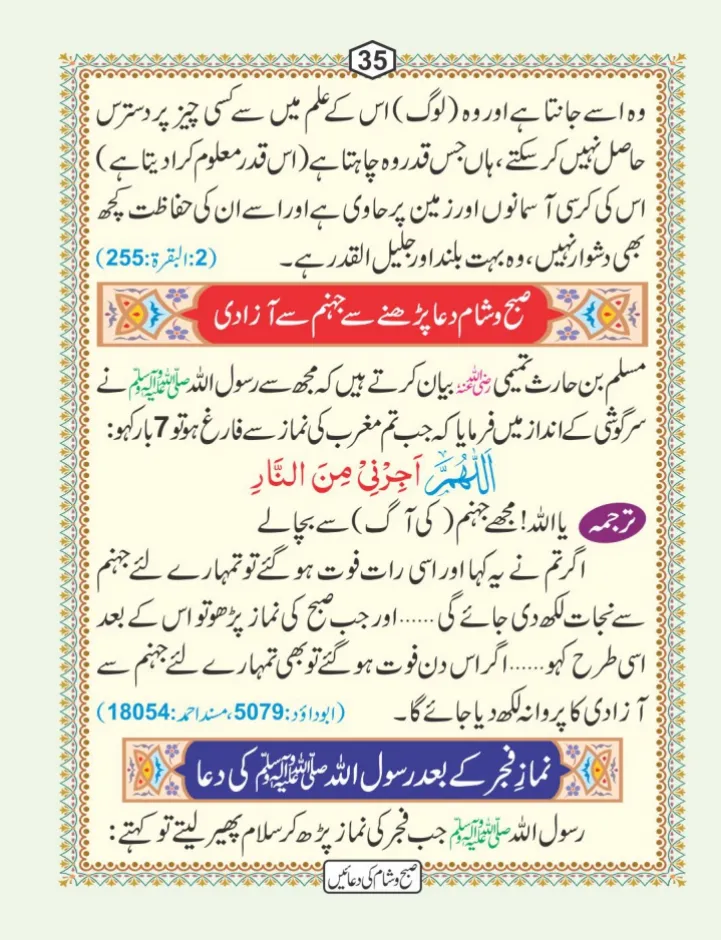 35
وہ اسے جانتا ہے اور وہ (لوگ) اس کے علم میں سے کسی چیز پر دسترس
حاصل نہیں کر سکتے، ہاں جس قدر وہ چاہتا ہے (اس قدر معلوم کرا دیتا ہے)
اس کی کرسی آسمانوں اور زمین پر حاوی ہے اور اسے ان کی حفاظت کچھ
بھی دشوار نہیں، وہ بہت بلند اور جلیل القدر ہے۔ (2:البقرة:255)
صبح و شام دعا پڑھنے سے جہنم سے آزادی
مسلم بن حارث تمیمی رضی اللہ عنہ بیان کرتے ہیں کہ مجھ سے رسول اللہ ﷺ نے
سرگوشی کے انداز میں فرمایا کہ جب تم مغرب کی نماز سے فارغ ہو تو 7 بار کہو:
اَللّٰهُمَّ اَجِرْنِيْ مِنَ النَّارِ
ترجمہ یا اللہ! مجھے جہنم (کی آگ) سے بچالے
اگر تم نے یہ کہا اور اسی رات فوت ہو گئے تو تمہارے لئے جہنم
سے نجات لکھ دی جائے گی ...... اور جب صبح کی نماز پڑھو تو اس کے بعد
اسی طرح کہو ...... اگر اس دن فوت ہو گئے تو بھی تمہارے لئے جہنم سے
آزادی کا پروانہ لکھ دیا جائے گا۔ (ابوداؤد:5079،مسند احمد:18054)
نمازِ فجر کے بعد رسول اللہ ﷺ کی دعا
رسول اللہ ﷺ جب فجر کی نماز پڑھ کر سلام پھیر لیتے تو کہتے:
صبح و شام کی دعائیں